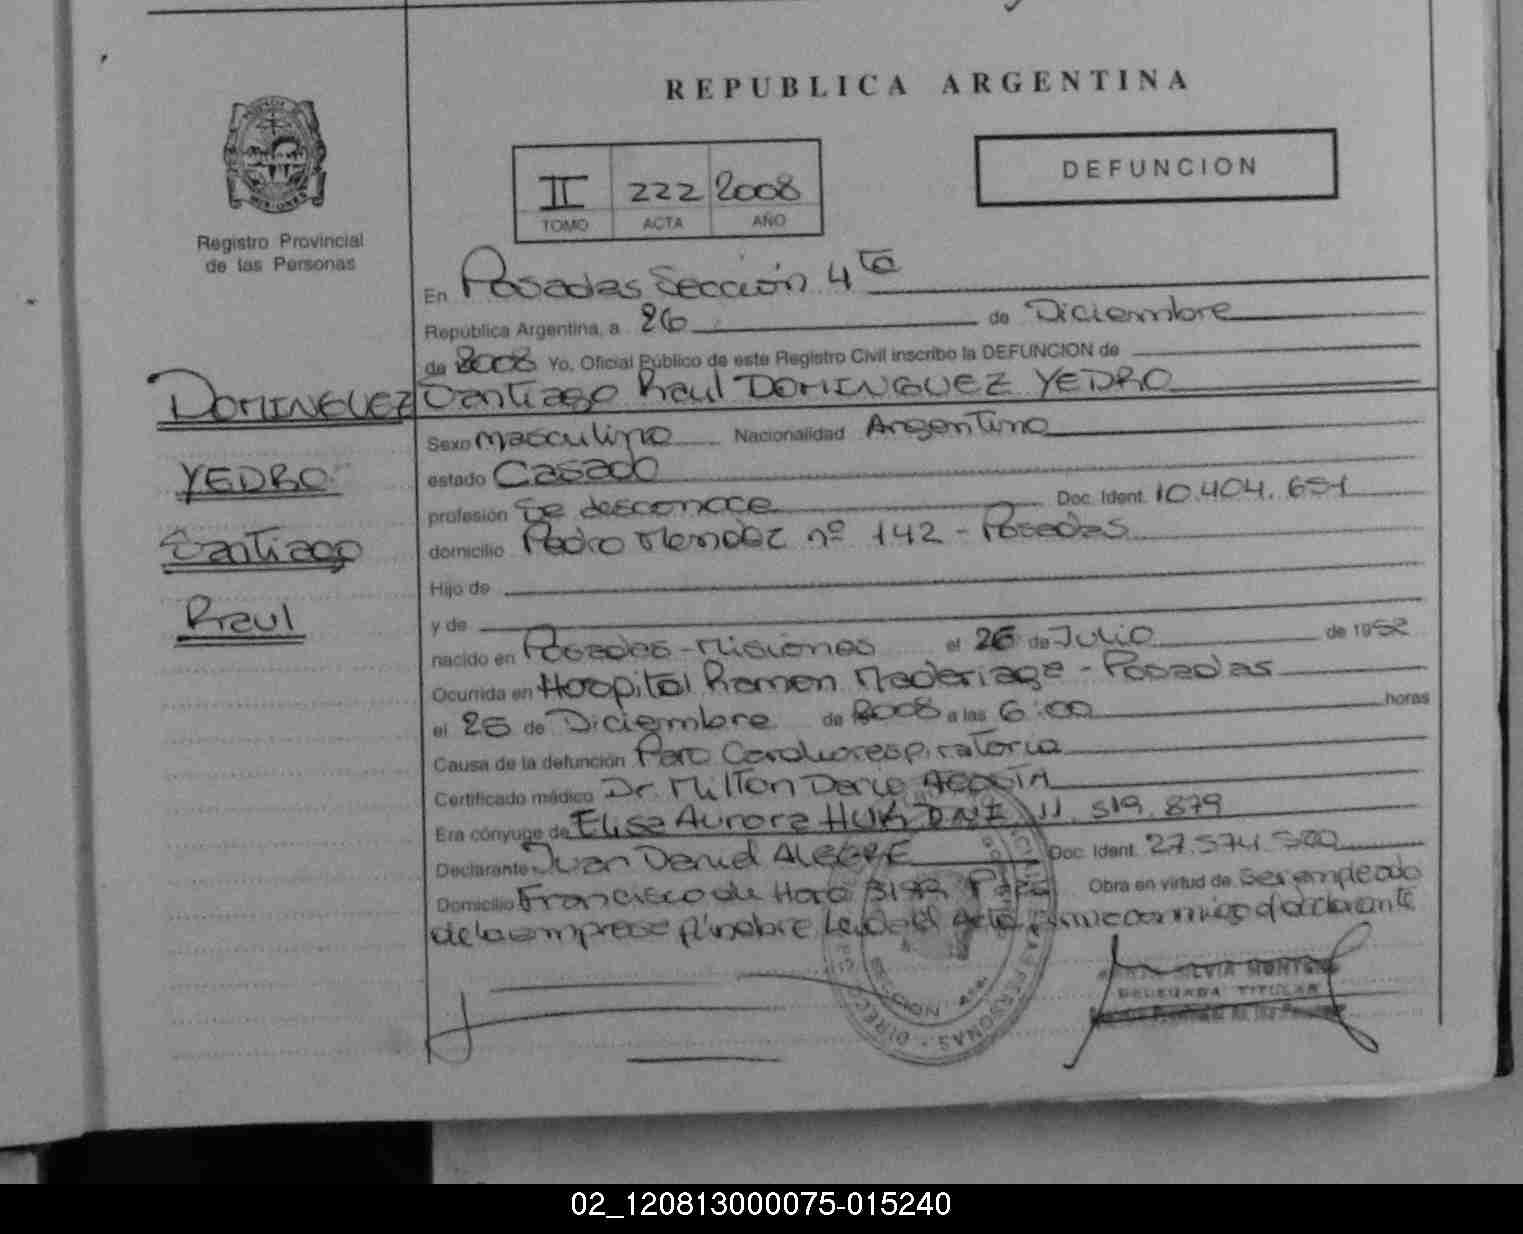 REPUBLICA ARGENTINA
DEFUNCION
II 222 2008
TOMO ACTA AÑO
Registro Provincial
de las Personas
En Posadas Sección 4ta
República Argentina, a 26 de Diciembre
de 2008 Yo, Oficial Público de este Registro Civil inscribo la DEFUNCION de
Santiago Raul DOMINGUEZ YEDRO
DOMINGUEZ
YEDRO
Santiago
Raul
Sexo Masculino Nacionalidad Argentino
estado Casado
profesión Se desconoce Doc. Ident. 10.404.651
domicilio Pedro Mendez nº 142 - Posadas
Hijo de
y de
nacido en Posadas - Misiones el 26 de Julio de 1952
Ocurrida en Hospital Ramon Maderiaga - Posadas
el 25 de Diciembre de 2008 a las 6:00 horas
Causa de la defunción Paro Cardiorespiratorio
Certificado médico Dr. Milton Dario ACOSTA
Era cónyuge de Elisa Aurora DNI 11.519.879
Declarante Juan Daniel ALEGRE Doc. Ident. 27.574.500
Domicilio Francisco de Haro Obra en virtud de Ser empleado
de la empresa fúnebre Leida el Acta firma conmigo el declarante
SILVIA
DELEGADA TITULAR
SECCION 4ta
PERSONAS
02_120813000075-015240